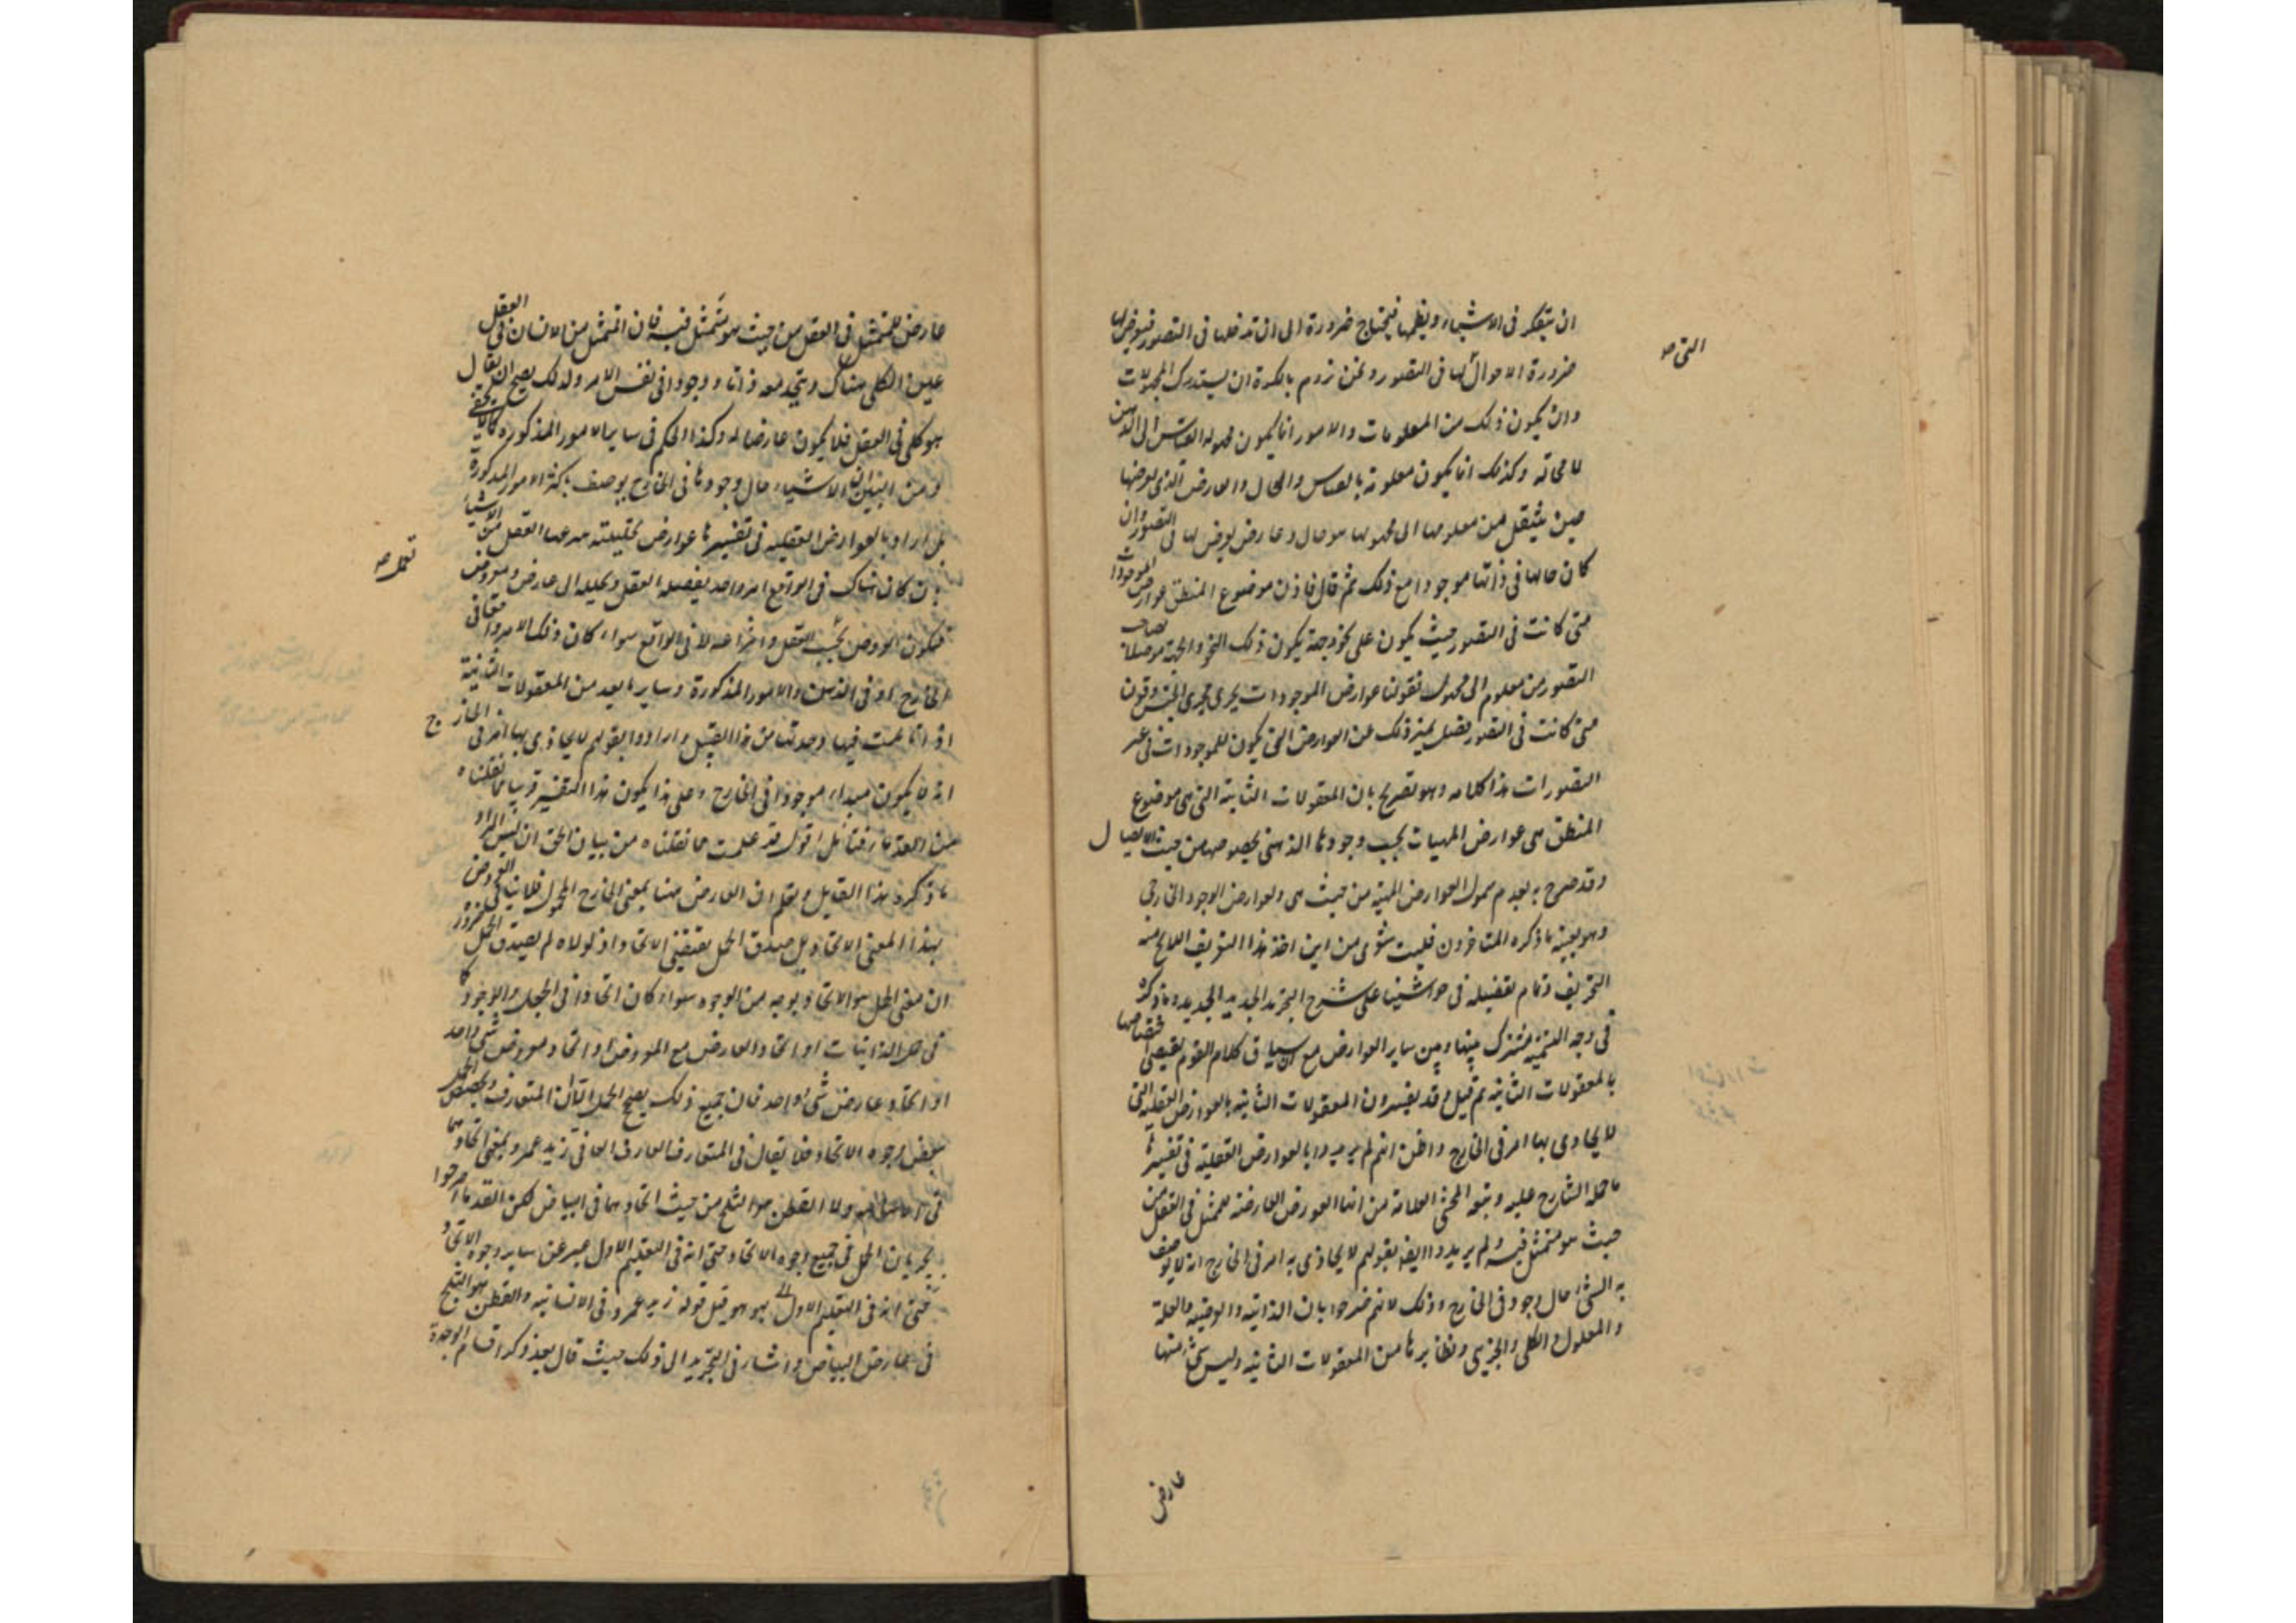 ان يتفكر فى الاشياء ويعلمها فيحتاج ضرورة الى ان تدخلها فى التصور فيعرض لها
التى صح
ضرورة الاحوال لها فى التصور ونحن نروم بالفكرة ان يستدرك المجهولات
وان يكون ذلك من المعلومات والامور انما يكون مجهولة بالقياس الى الذهن
لا محالة وكذلك انما يكون معلومة بالقياس والحال والعارض الذى يعرضها
حين ينتقل من معلومها الى مجهولها هو حال وعارض يعرض لها فى التصور وان
كان مالها فى ذاتها موجودا مع ذلك ثم قال فاذن موضوع المنطق عوارض الموجودات
متى كانت فى التصور حيث يكون على نحو وجهة يكون ذلك النحو والجهة موصلا لصاحب
التصور من معلوم الى مجهول فقولنا عوارض الموجودات يجرى مجرى الجنس وقولنا
متى كانت فى التصور فصل يميز ذلك عن العوارض التى يكون للموجودات فى غير
التصورات هذا كلامه وهو تصريح بان المعقولات الثانية التى هى موضوع
المنطق هى عوارض المهيات بحسب وجودها الذهنى بخصوصها من حيث الايصال
وقد صرح به بعدم شمول العوارض المهية من حيث هى ولعوارض الوجود الخارجى
وهو بعينه ما ذكره المتاخرون فليت شعرى من اين اخذ هذا التعريف اللايح منه
التحريف وتمام تفصيله فى حواشينا على شرح التجريد الجديد الجديدة وما ذكره
فى وجه التسمية مشترك بينها وبين ساير العوارض مع ان سياق كلام القوم يقتضى اختصاصها
بالمعقولات الثانية ثم قيل وقد يفسرون المعقولات الثانية بالعوارض العقلية التى
لا يحاذى بها امر فى الخارج واظن انهم لم يريدوا بالعوارض العقلية فى تفسيرها
ما حمله الشارح عليه وتبعه المحشى العلامة من انها العوارض العارضة للمتمثل فى العقل من
حيث هو متمثل فيه ولم يريدوا ايضا بقولهم لا يحاذى به امر فى الخارج انه لا يوصف
به الشئ حال وجوده فى الخارج وذلك لانهم صرحوا بان الذاتية والعرضية والعلة
والمعلول والكلى والجزئى ونظايرها من المعقولات الثانية وليس شئ منها
عارض
عارض للمتمثل فى العقل من حيث هو متمثل فيه فان المتمثل من الانسان فى العقل
عين الكلى هناك ويتحد معه ذاتا ووجودا فى نفس الامر ولذلك يصح ان يقال
هو كلى فى العقل فلا يكون عارضا له وكذا الحكم فى ساير الامور المذكورة كما لا يخفى
ومن البين ان الاشياء حال وجودها فى الخارج يوصف باكثر الامور المذكورة
بل ارادوا بالعوارض العقلية فى تفسيرها عوارض العقل من الاشياء
تعمله صح
بان كان هناك فى الواقع امر واحد يفصله العقل ويحلله الى عارض ومعروض
فيكون العروض بحسب العقل وانتزاعه لا فى الواقع سواء كان ذلك الامر واقعا فى
الخارج او فى الذهن والامور المذكورة وسايرها يعد من المعقولات الثانية
اذا تاملت فيها وجدتها من هذا القبيل وارادوا بقولهم لا يحاذى بها امر فى الخارج
انه لا يكون مبداء موجودا فى الخارج وعلى هذا يكون هذا التفسير قريبا مما نقلناه
فتامل اقول قد علمت مما نقلناه من بيان الحق ان ليس المراد
ما ذكره هذا القايل وتعلم ان العارض هنا بمعنى الخارج المحمول فلا ينافى العروض
بهذا المعنى الاتحاد بل صدق الحمل يقتضى الاتحاد اذ لولاه لم يصدق الحمل ضرورة
ان معنى الحمل هو الاتحاد بوجه من الوجوه سواء كان اتحادا فى الجعل والوجود كما
فى حمل الذاتيات او اتحاد العارض مع المعروض او اتحاد معروض شئ واحد
او اتحاد عارض شئ واحد فان جميع ذلك يصح الحمل المتعارف
ببعض وجوه الاتحاد فلا يقال فى المتعارف زيد عمرو بمعنى اتحادهما
فى ولا القطن هو الثلج من حيث اتحادهما فى البياض لكن القدماء صرحوا
بجريان الحمل فى جميع وجوه الاتحاد حتى انه فى التعليم الاول عبر عن ساير وجوه الاتحاد
حتى انه فى التعليم الاول بهو هو قبل قوله زيد عمرو فى الانسانية والقطن هو الثلج
فى عارض البياض واشار فى التجريد الى ذلك حيث قال بعد ذكر اقسام الوحدة